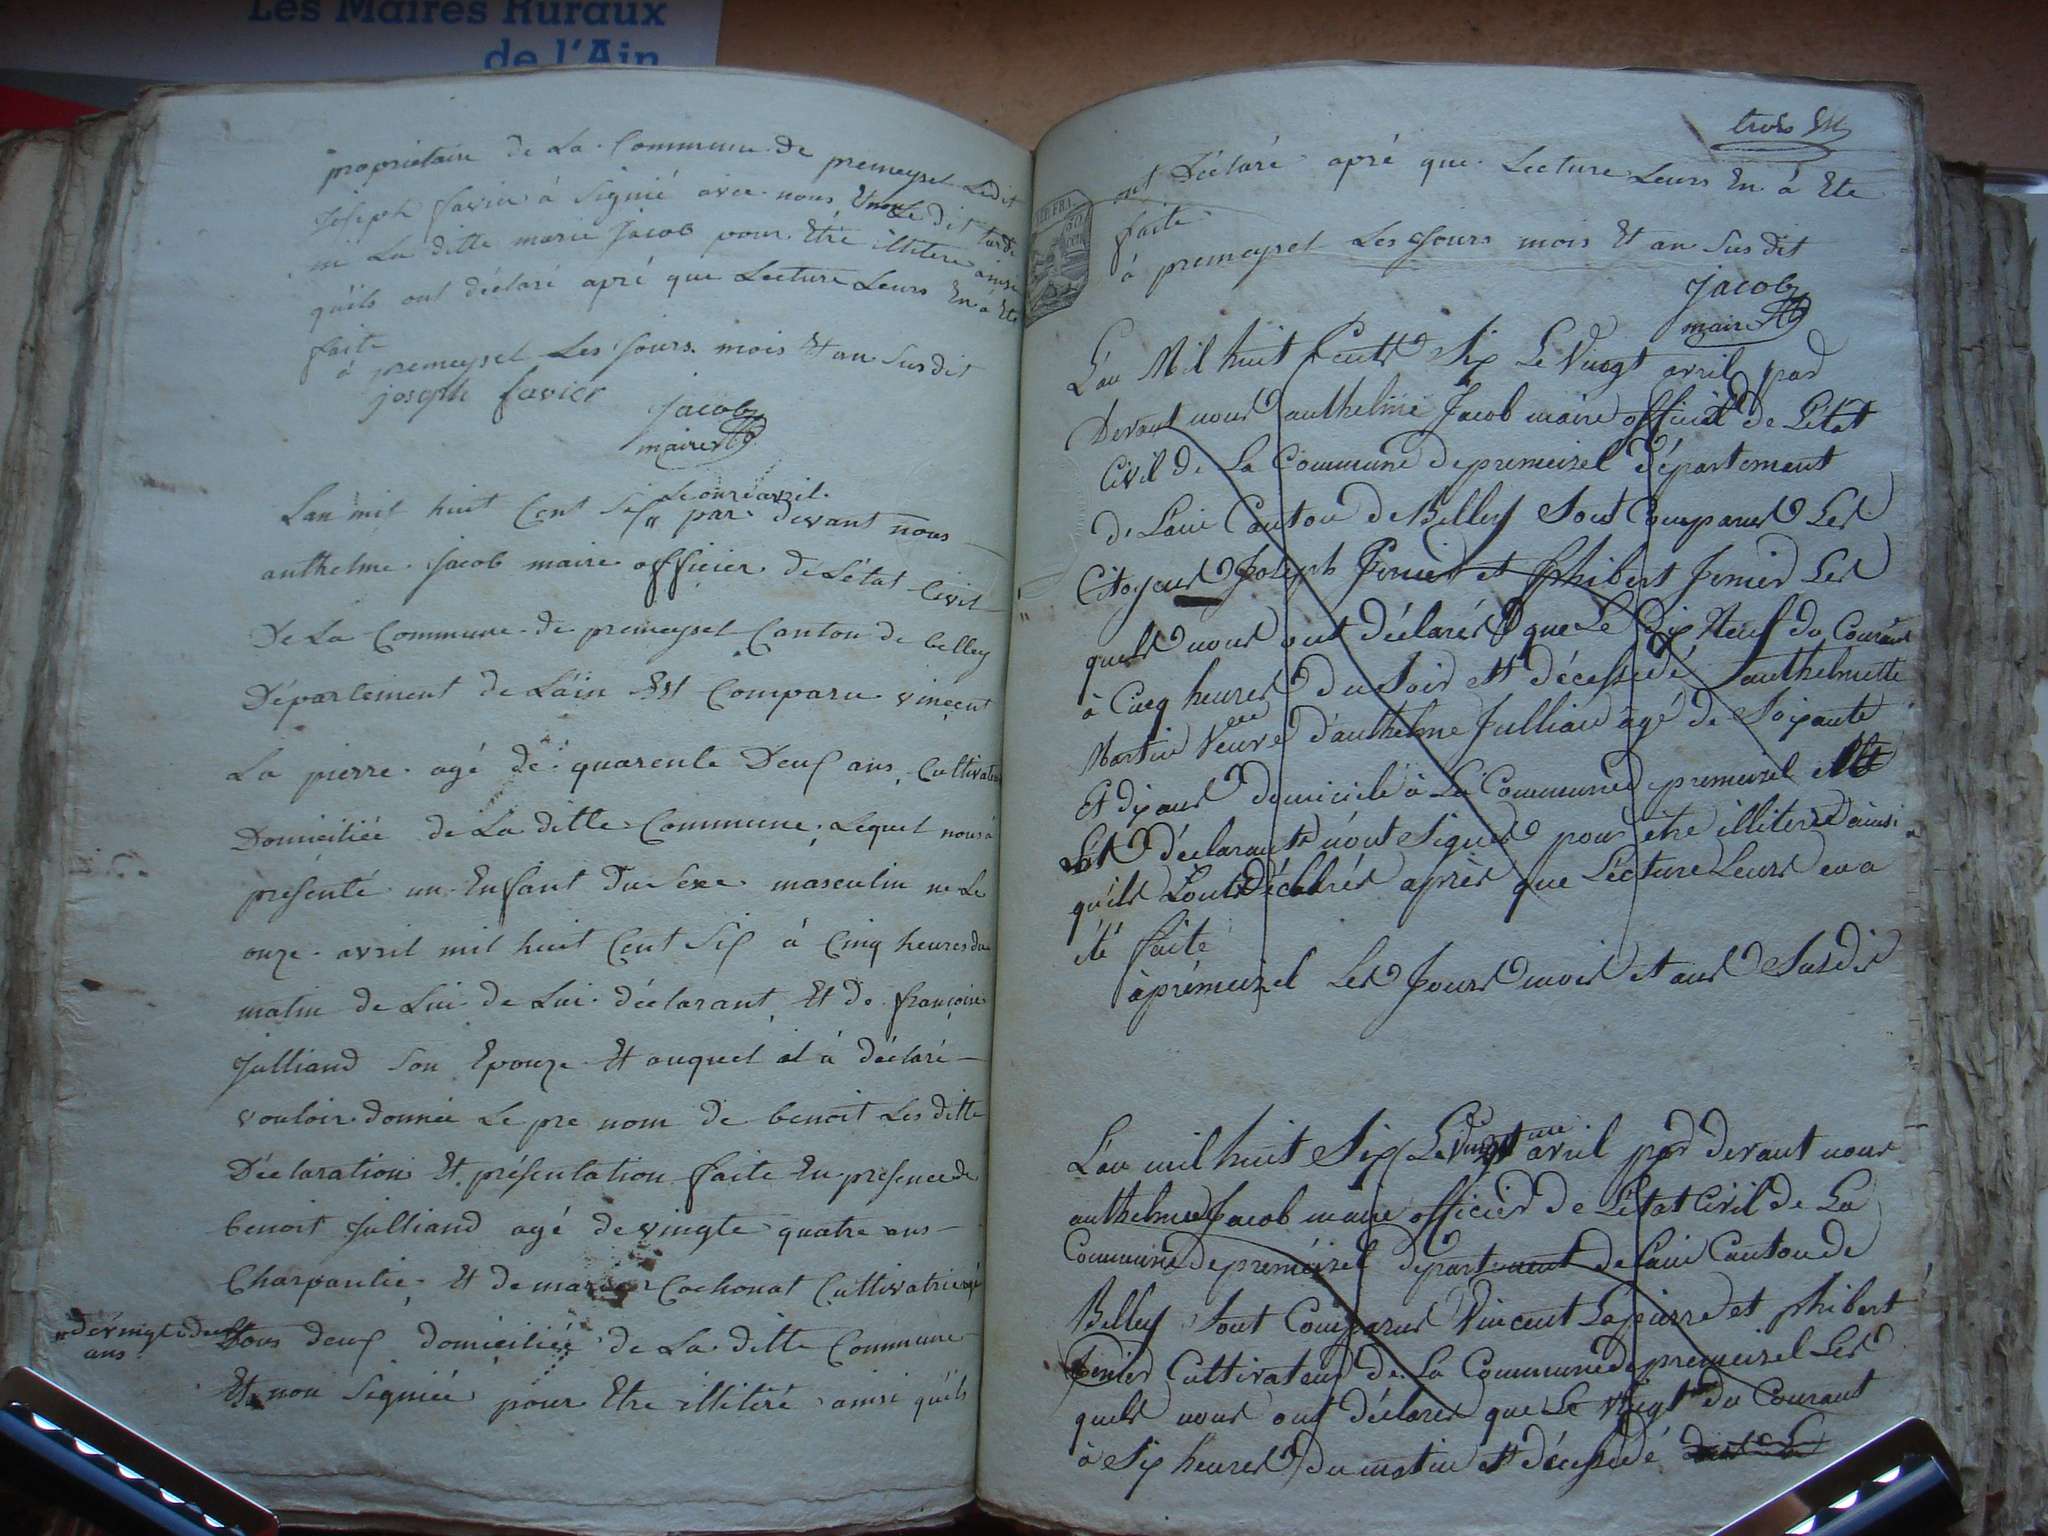 Les Maires Ruraux
de l'Ain
propriétaire de La Commune de premeysel Ledit
joseph favier à Signié avec nous
ni La ditte marie Jacob pour Etre illitere ainsi
quils ont déclaré apré que Lecture Leurs En a Ete
faite
à premeysel Les jours mois Et an Susdit
joseph favier
Jacob
maire
Le onze avril
Lan mil huit Cent Six " par devant nous
anthelme Jacob maire officier De Létat Civil
De La Commune de premeysel Canton de belley
Département de Lain Est Comparu vincent
La pierre agé de quarente Deux ans Cultivateur
Domiciliée de La ditte Commune Lequel nous à
présenté un Enfant Du Sexe masculin ne Le
onze avril mil huit Cent Six à Cinq heures du
matin de Lui de Lui déclarant Et de françoise
Julliand Son Epouze Et auquel il à déclaré
vouloir donnée Le pre nom de benoit Les ditte
Déclaration Et présentation faite En presence de
benoit Julliand agé de vingte quatre ans
Charpantie Et de Cochonat Cultivatrice agé
" de vingte deux
ans
Tous deux domiciliée de La ditte Commune
Et non Signiée pour Etre illitéré ainsi quils
trois
ont Déclaré apré que Lecture Leurs En à Ete
faite
à premeysel Les Jours mois Et an Sus dit
Jacob
maire
REP. FRA.
L'an Mil huit Cent Six Le Vingt avril par
Devant nous anthelme Jacob maire officier De L'état
Civil De La Commune de premeizel département
de L'ain Canton de Belley Sont Comparus Les
Citoyens Joseph Fenier et Phibert Fenier Les
quels nous ont déclarés que Le Dix Neuf du Courant
à Cinq heures Du Soir est décessedé anthelmette
Martin Veuve d'anthelme Jullian agé de Soixante
Et dix ans domicilé à La Commune premeizel
Les déclarants n'ont Signés pour être illiterés ainsi
qu'ils L'ont déclarés après que Lecture Leurs en a
été faite
à prémeizel Les Jours mois et ans Susdis
L'an mil huit Six Le Vingt un avril par devant nous
anthelme Jacob maire officier De L'état Civil de La
Commune de preméizel département de L'ain Canton de
Belley Sont Comparus Vincent Lapierre et phibert
Fenier Cultivateurs de La Commune de premeizel Les
quels nous ont déclarés que Le Vingt du Courant
à Six heures du matin est décessedé